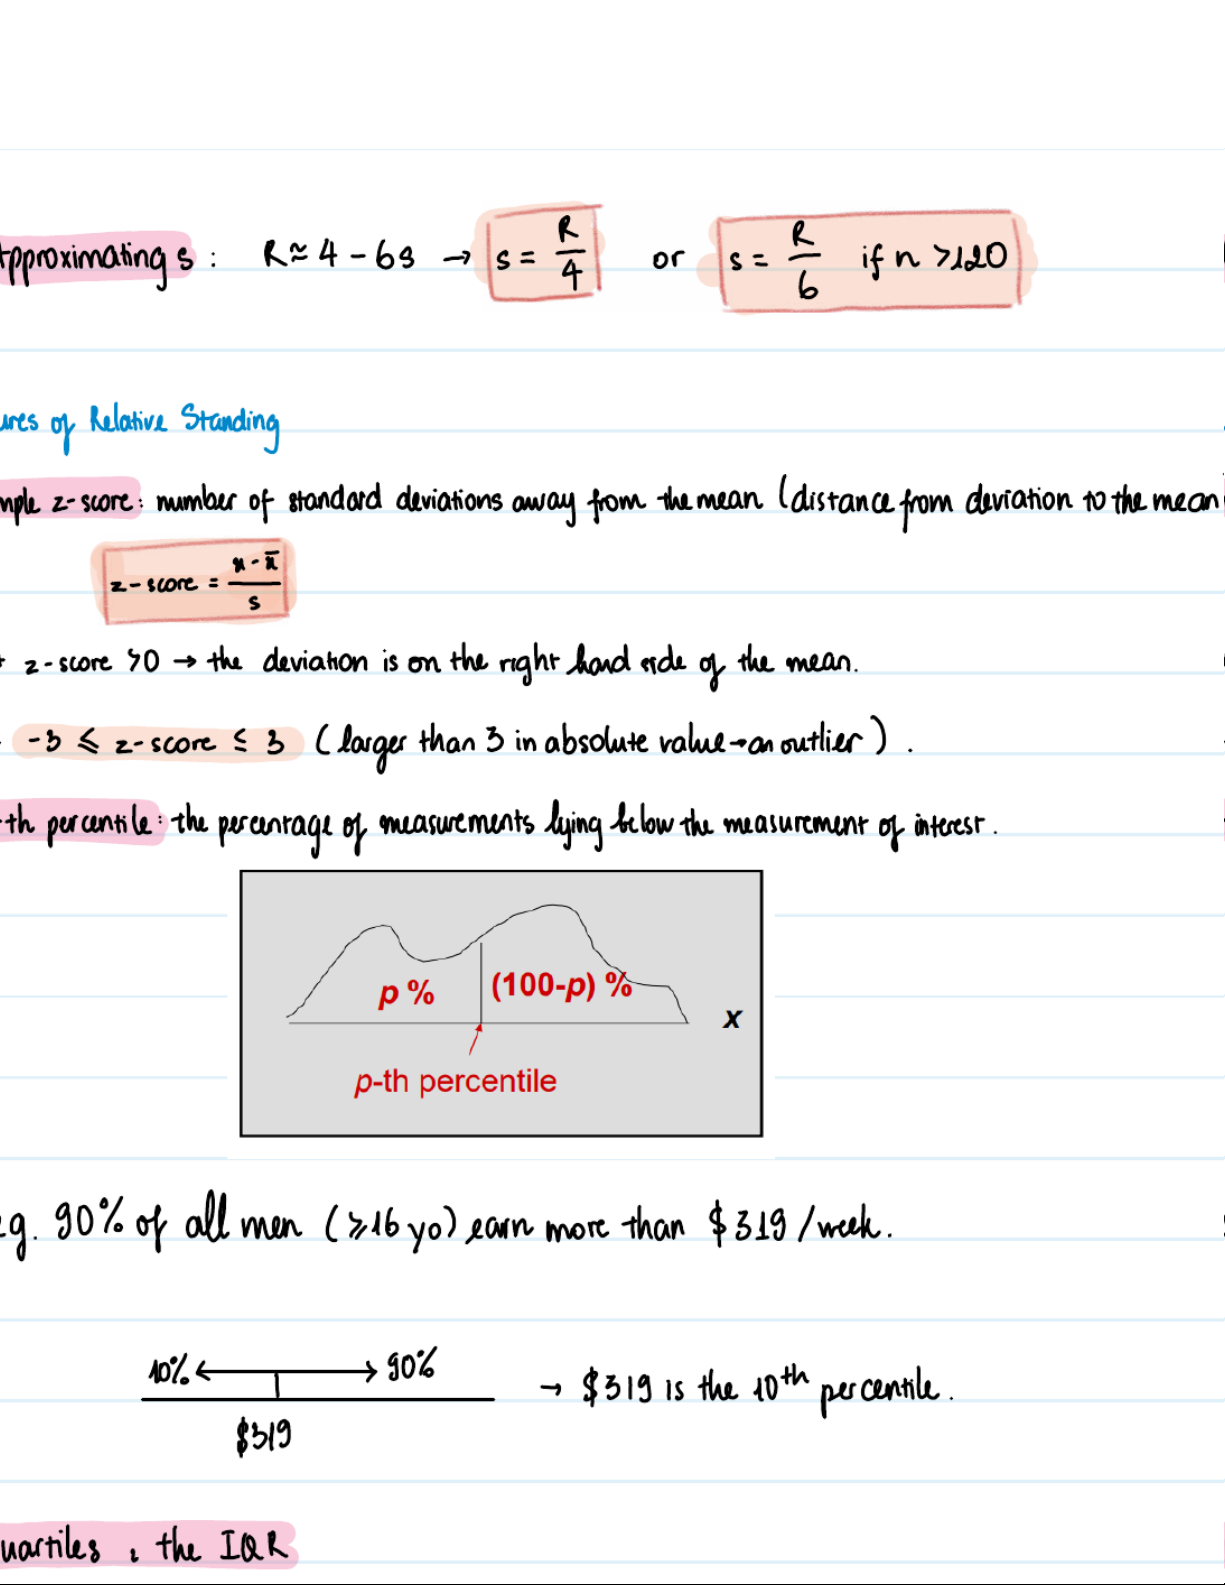 Approximating s : R ≈ 4 - 6s → s = R/4 or s = R/6 if n >120
ures of Relative Standing
mple z-score: number of standard deviations away from the mean (distance from deviation to the mean
z-score = x - x̄ / s
z-score >0 → the deviation is on the right hand side of the mean.
-3 ≤ z-score ≤ 3 (larger than 3 in absolute value → an outlier).
-th percentile: the percentage of measurements lying below the measurement of interest.
p % (100-p) %
x
p-th percentile
e.g. 90% of all men (≥16 yo) earn more than $319/week.
10% ← → 90%
→ $319 is the 10th percentile.
$319
uartiles & the IQR